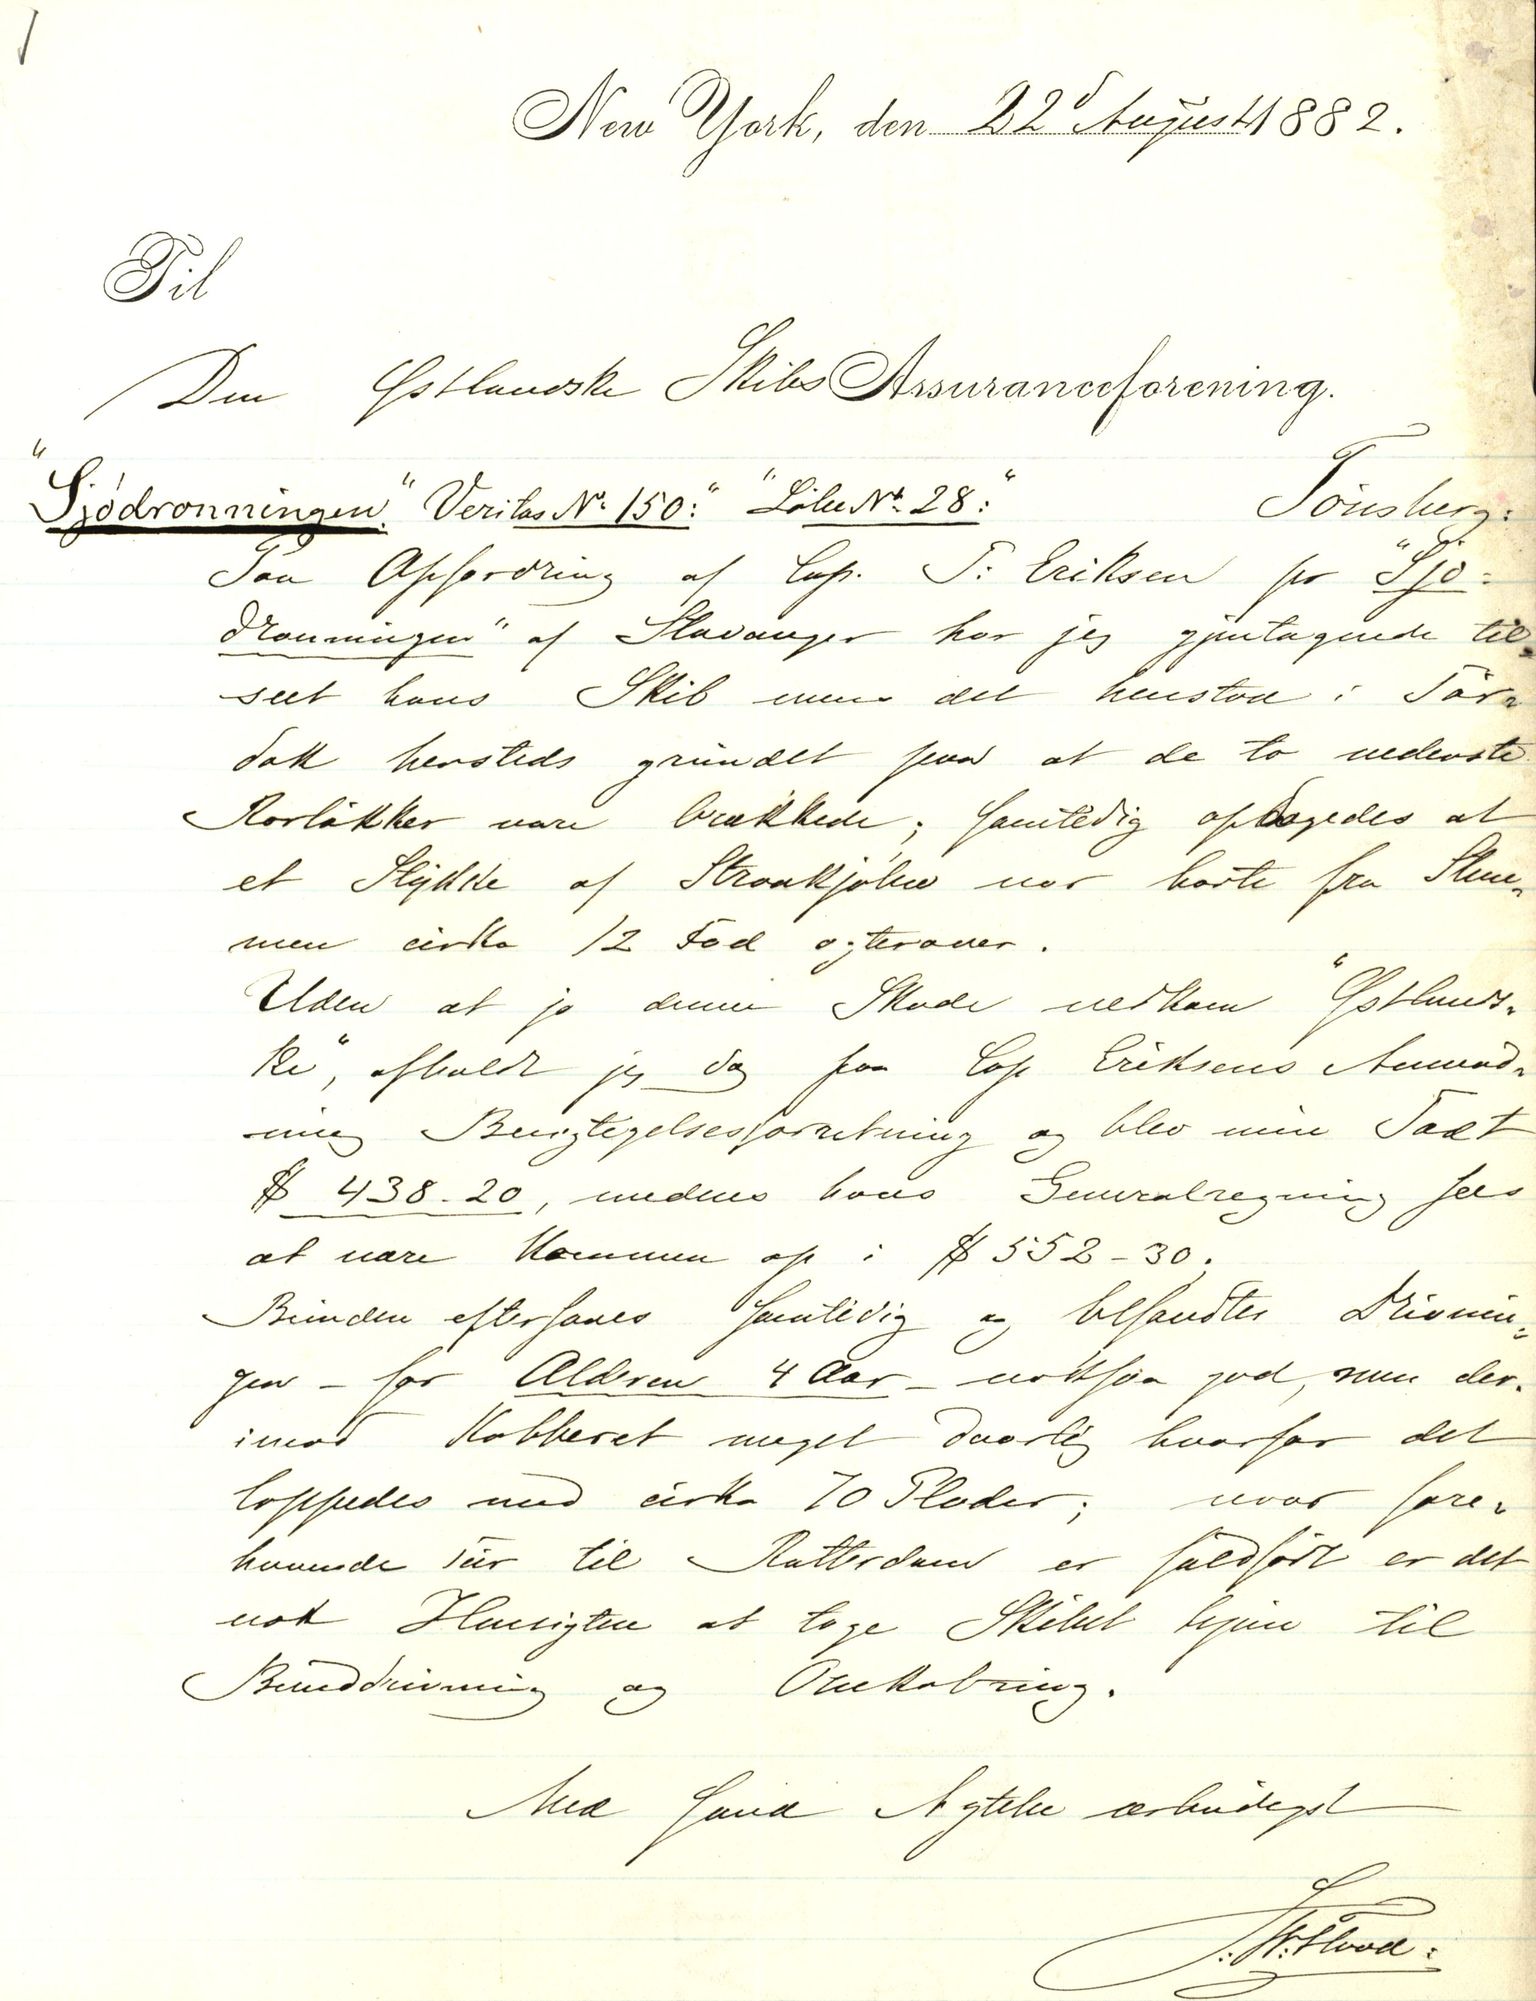 New York, den 22d August 1882.
Til
Den Østlandske Skibs Assuranceforening.
"Sjødronningen" Veritas No 150:" "Löbe No 28:" Tönsberg:
Paa Opfordring af Cap. T: Eriksen pr "Sjö-
dronningen" af Stavanger har jeg gjentagende til-
seet hans Skib mens det henstod i Tör-
dok hersteds grundet paa at de to nederste
Rorlökker vare brækkede; samtidig opdagedes at
et Stykke af Straakjölen var borte fra Stev-
nen cirka 12 Fod agterover.
Uden at jo denne Skade vedkom "Østlands-
ke", afholdt jeg dog paa Cap Eriksens Anmod-
ning Besigtigelsesforretning og blev min Taxt
$ 438-20, medens hans Generalregning sees
at være kommen op i $ 552-30.
Bunden eftersaaes samtidig og befandtes Drivnin-
gen - for Alderen 4 Aar - noksaa god, men der-
imod Kobberet meget daarlig hvorfor det
lappedes med cirka 70 Plader; naar fore-
havende Tur til Rotterdam er fuldfört er det
nok Hensigten at tage Skibet hjem til
Bunddrivning og Omkobring.
Med sand Agtelse ærbödigst
S. W. Flood: